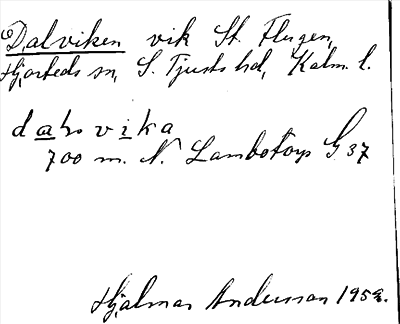 Dalviken vik St. Flugen,
Hjorteds sn, S. Tjusts hd, Kalm. l.
700 m. N. Lambotorp G 37
Hjalmar Andersson 1952.